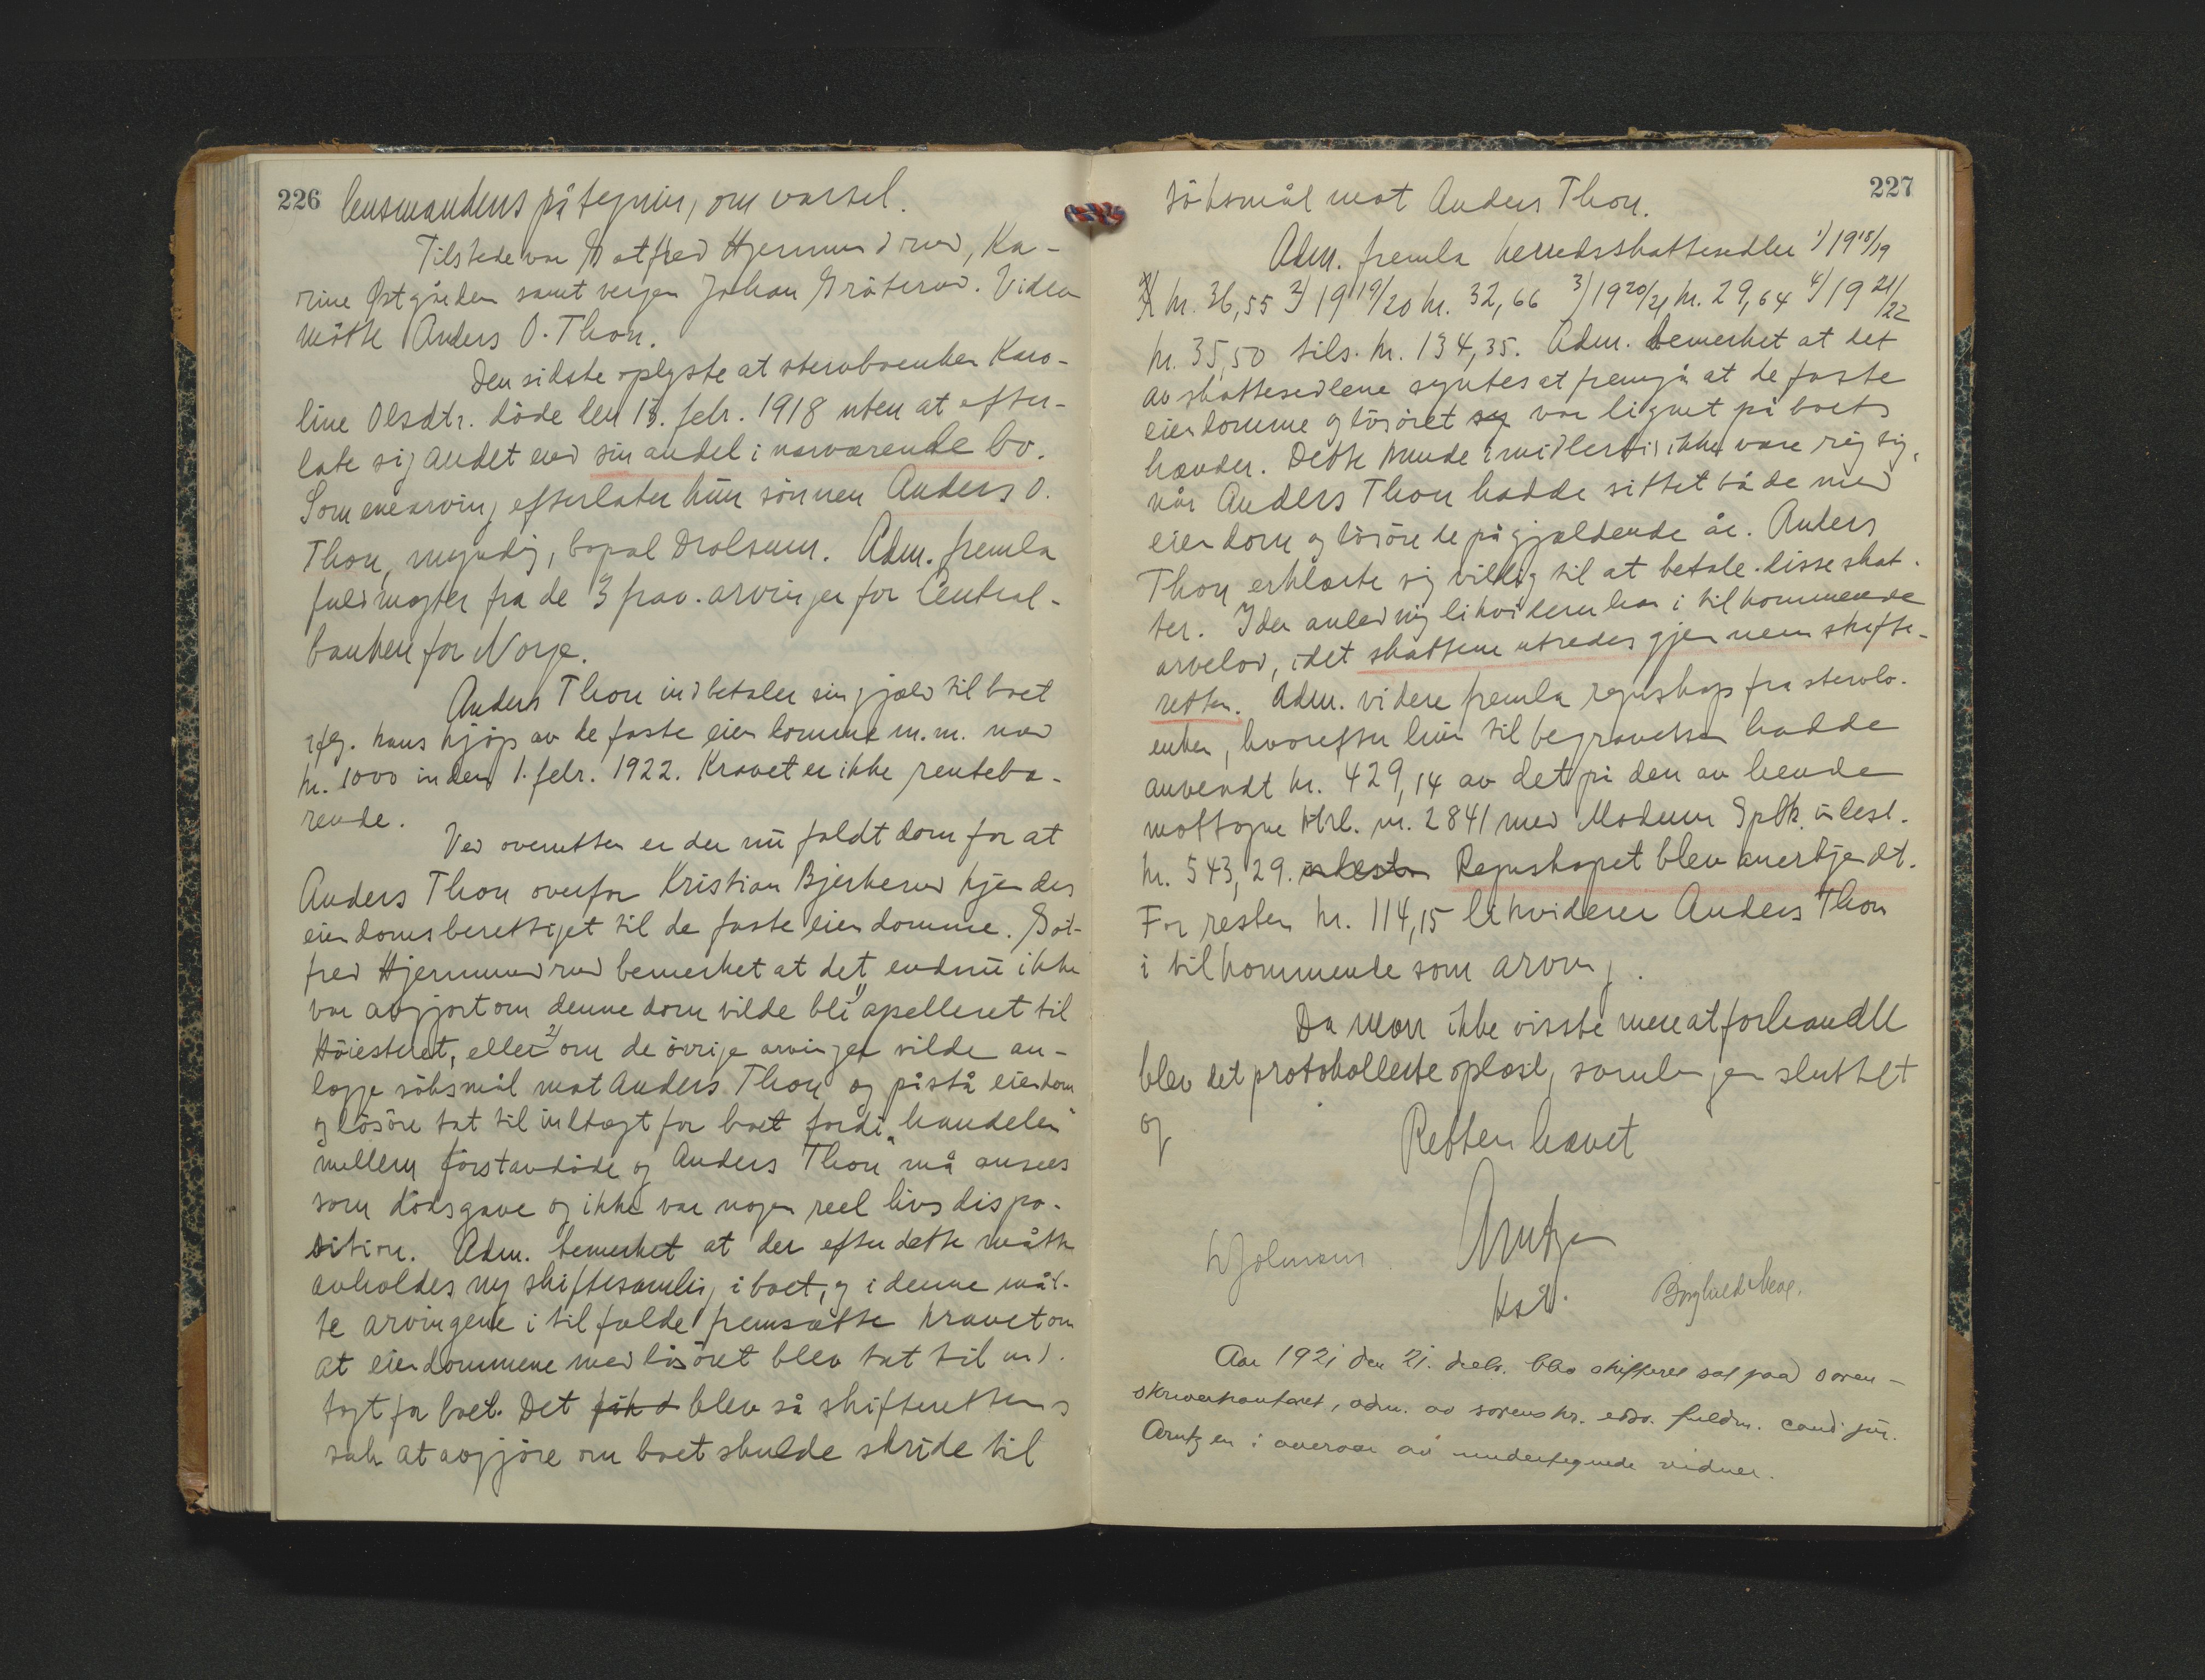 226
lensmandens påtegning om varsel.
Tilstede var Gotfred Hjermundrud, Ka-
rine Østgården samt vergen Johan Gråterud. Videre
mötte Anders O. Thon.
Den sidste oplyste at stervboenken Karo-
line Olsdtr. döde den 13. febr. 1918 uten at efter-
late sig andet end sin andel i nærværende bo.
Som enearving efterlater hun sönnen Anders O.
Thon, myndig, bopæl Drolsum. Adm. fremla
fuldmagter fra de 3 frav. arvinger for Central-
banken for Norge.
Anders Thon indbetaler sin gjæld til boet
iflg. hans kjöp av de faste eiendomme m.m. med
kr. 1000 inden 1. febr. 1922. Kravet er ikke renteba-
rende.
Ved overretten er der nu faldt dom for at
Anders Thon overfor Kristian Bjerkerud kjendes
eiendomsberettiget til de faste eiendomme. Got-
fred Hjermundrud bemerket at det endnu ikke
var avgjort om denne dom vilde bli 1) apelleret til
Höiesteret, eller 2) om de övrige arvinger vilde an-
lægge söksmål mot Anders Thon og påstå eiendom
og lösöre tat til indtægt for boet fordi "handelen"
mellem förstavdöde og Anders Thon må ansees
som dödsgave og ikke var nogen reel livsdispo-
sition. Adm. bemerket at der efter dette måtte
avholdes ny skiftesamling i boet, og i denne måt-
te arvingene i tilfælde fremsætte kravet om
at eiendommene med lösöret blev tat til ind-
tægt for boet. Det blev så skifterettens
sak at avgjöre om boet skulde skride til
227
söksmål mot Anders Thon.
Adm. fremla herredsskattesedler 1) 1918/19
kr. 36,55 2) 1919/20 kr. 32,66 3) 1920/21 kr. 29,64 4) 1921/22
kr. 35,50 tils. kr. 134,35. Adm. bemerket at det
av skattesedlene syntes at fremgå at de faste
eiendomme og lösöret var lignet på boets
hænder. Dette kunde imidlertid ikke være rigtig,
når Anders Thon hadde sittet både med
eiendom og lösöre de pågjældende år. Anders
Thon erklærte sig villig til at betale disse skat-
ter. I den anledning likviderer han i tilkommende
arvelod, idet skattene utredes gjennem skifte-
retten. Adm. videre fremla regnskap fra stervbo-
enken, hvorefter hun til begravelsen hadde
anvendt kr. 429,14 av det på den av hende
mottagne ktrb. nr. 2841 med Modum Spbk. indest.
kr. 543,29. Regnskapet blev anerkjendt.
For resten kr. 114,15 likviderer Anders Thon
i tilkommende som arving.
Da man ikke visste mere at forhandle
blev det protokollerte oplæst, samlingen sluttet
og
Retten hævet
Arntzen
kst.
Aar 1921 den 21. decbr. blev skifteret sat paa soren-
skriverkontoret, adm. av sorenskr. edsv. fuldm. cand jur.
Arntzen i overvær av undertegnede vidner.